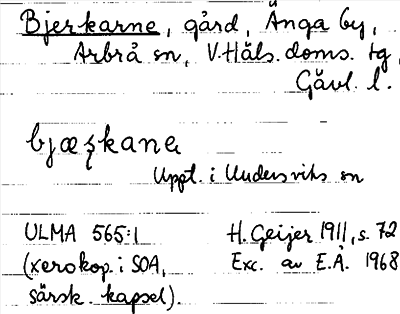 Bjerkarne, gård, Änga by,
Arbrå sn, V. Häls. doms. tg,
Gävl. l.
bjæʂkanɐ
Uppt. i Undersviks sn
ULMA 565:1 H. Geijer 1911, s. 72
(xerokop. i SOA, Exc. av E.Å. 1968
särsk. kapsel).